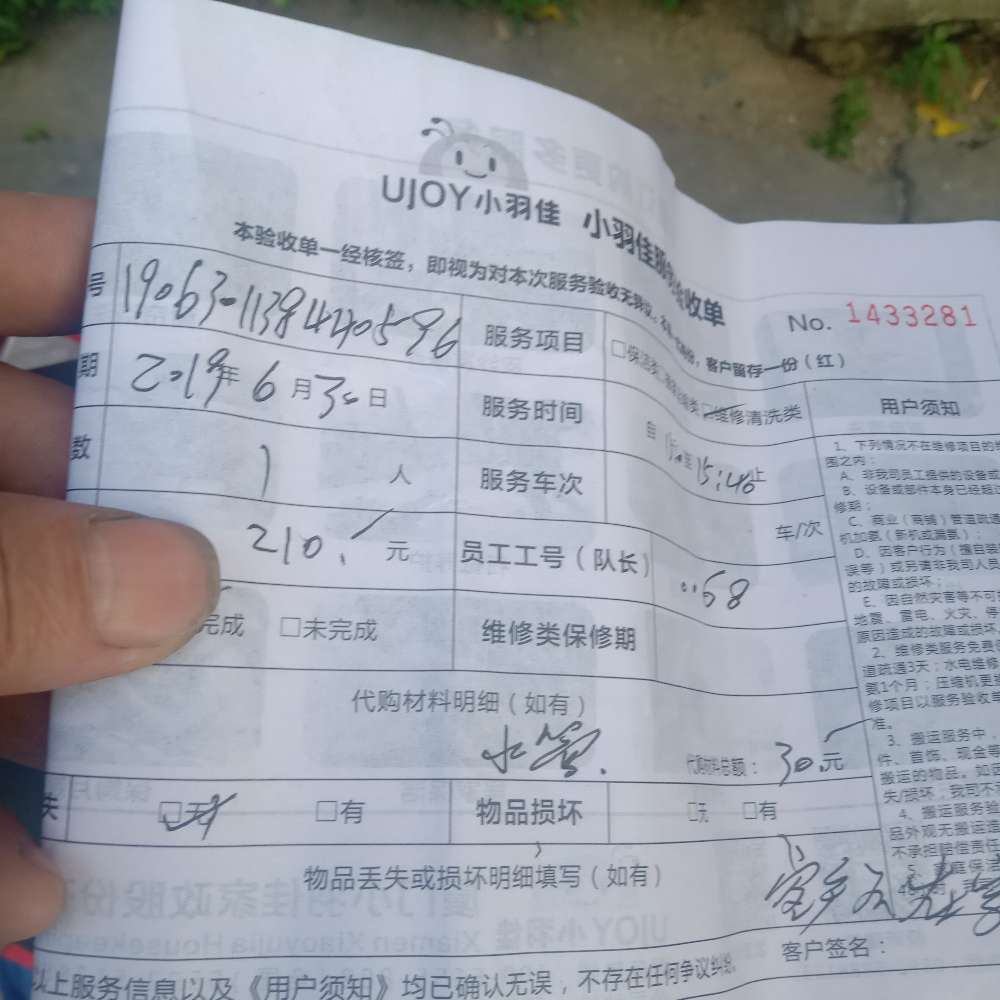 UJOY小羽佳 小羽佳服务验收单
本验收单一经核签，即视为对本次服务验收无异议，客户留存一份（红）
No. 1433281
号 190630113844059​6 服务项目 □保洁类 □维修清洗类
期 2019年6月30日 服务时间 自 至15:40止
数 1人 服务车次 车/次
210.元 员工工号（队长） 0068
完成 □未完成 维修类保修期
代购材料明细（如有）
水管. 代购材料总额：30.元
失 □无 □有 物品损坏 □无 □有
物品丢失或损坏明细填写（如有）
客户签名：
以上服务信息以及《用户须知》均已确认无误，不存在任何争议纠纷
用户须知
1、下列情况不在维修项目的
围之内：
A、非我司员工提供的设备或
B、设备或部件本身已经超过
修期；
C、商业（商铺）管道疏通
机加氨（新机或漏氨）；
D、因客户行为（擅自装
误等）或另请非我司人员
的故障或损坏；
E、因自然灾害等不可
地震、雷电、火灾、停
原因造成的故障或损坏
2、维修类服务免费
道疏通3天；水电维修
氨1个月；压缩机更换
修项目以服务验收单
准。
3、搬运服务中，
件、首饰、现金等
搬运的物品。如因
失/损坏，我司不
4、搬运服务验
品外观无搬运造
不承担赔偿责任
5、家庭保洁